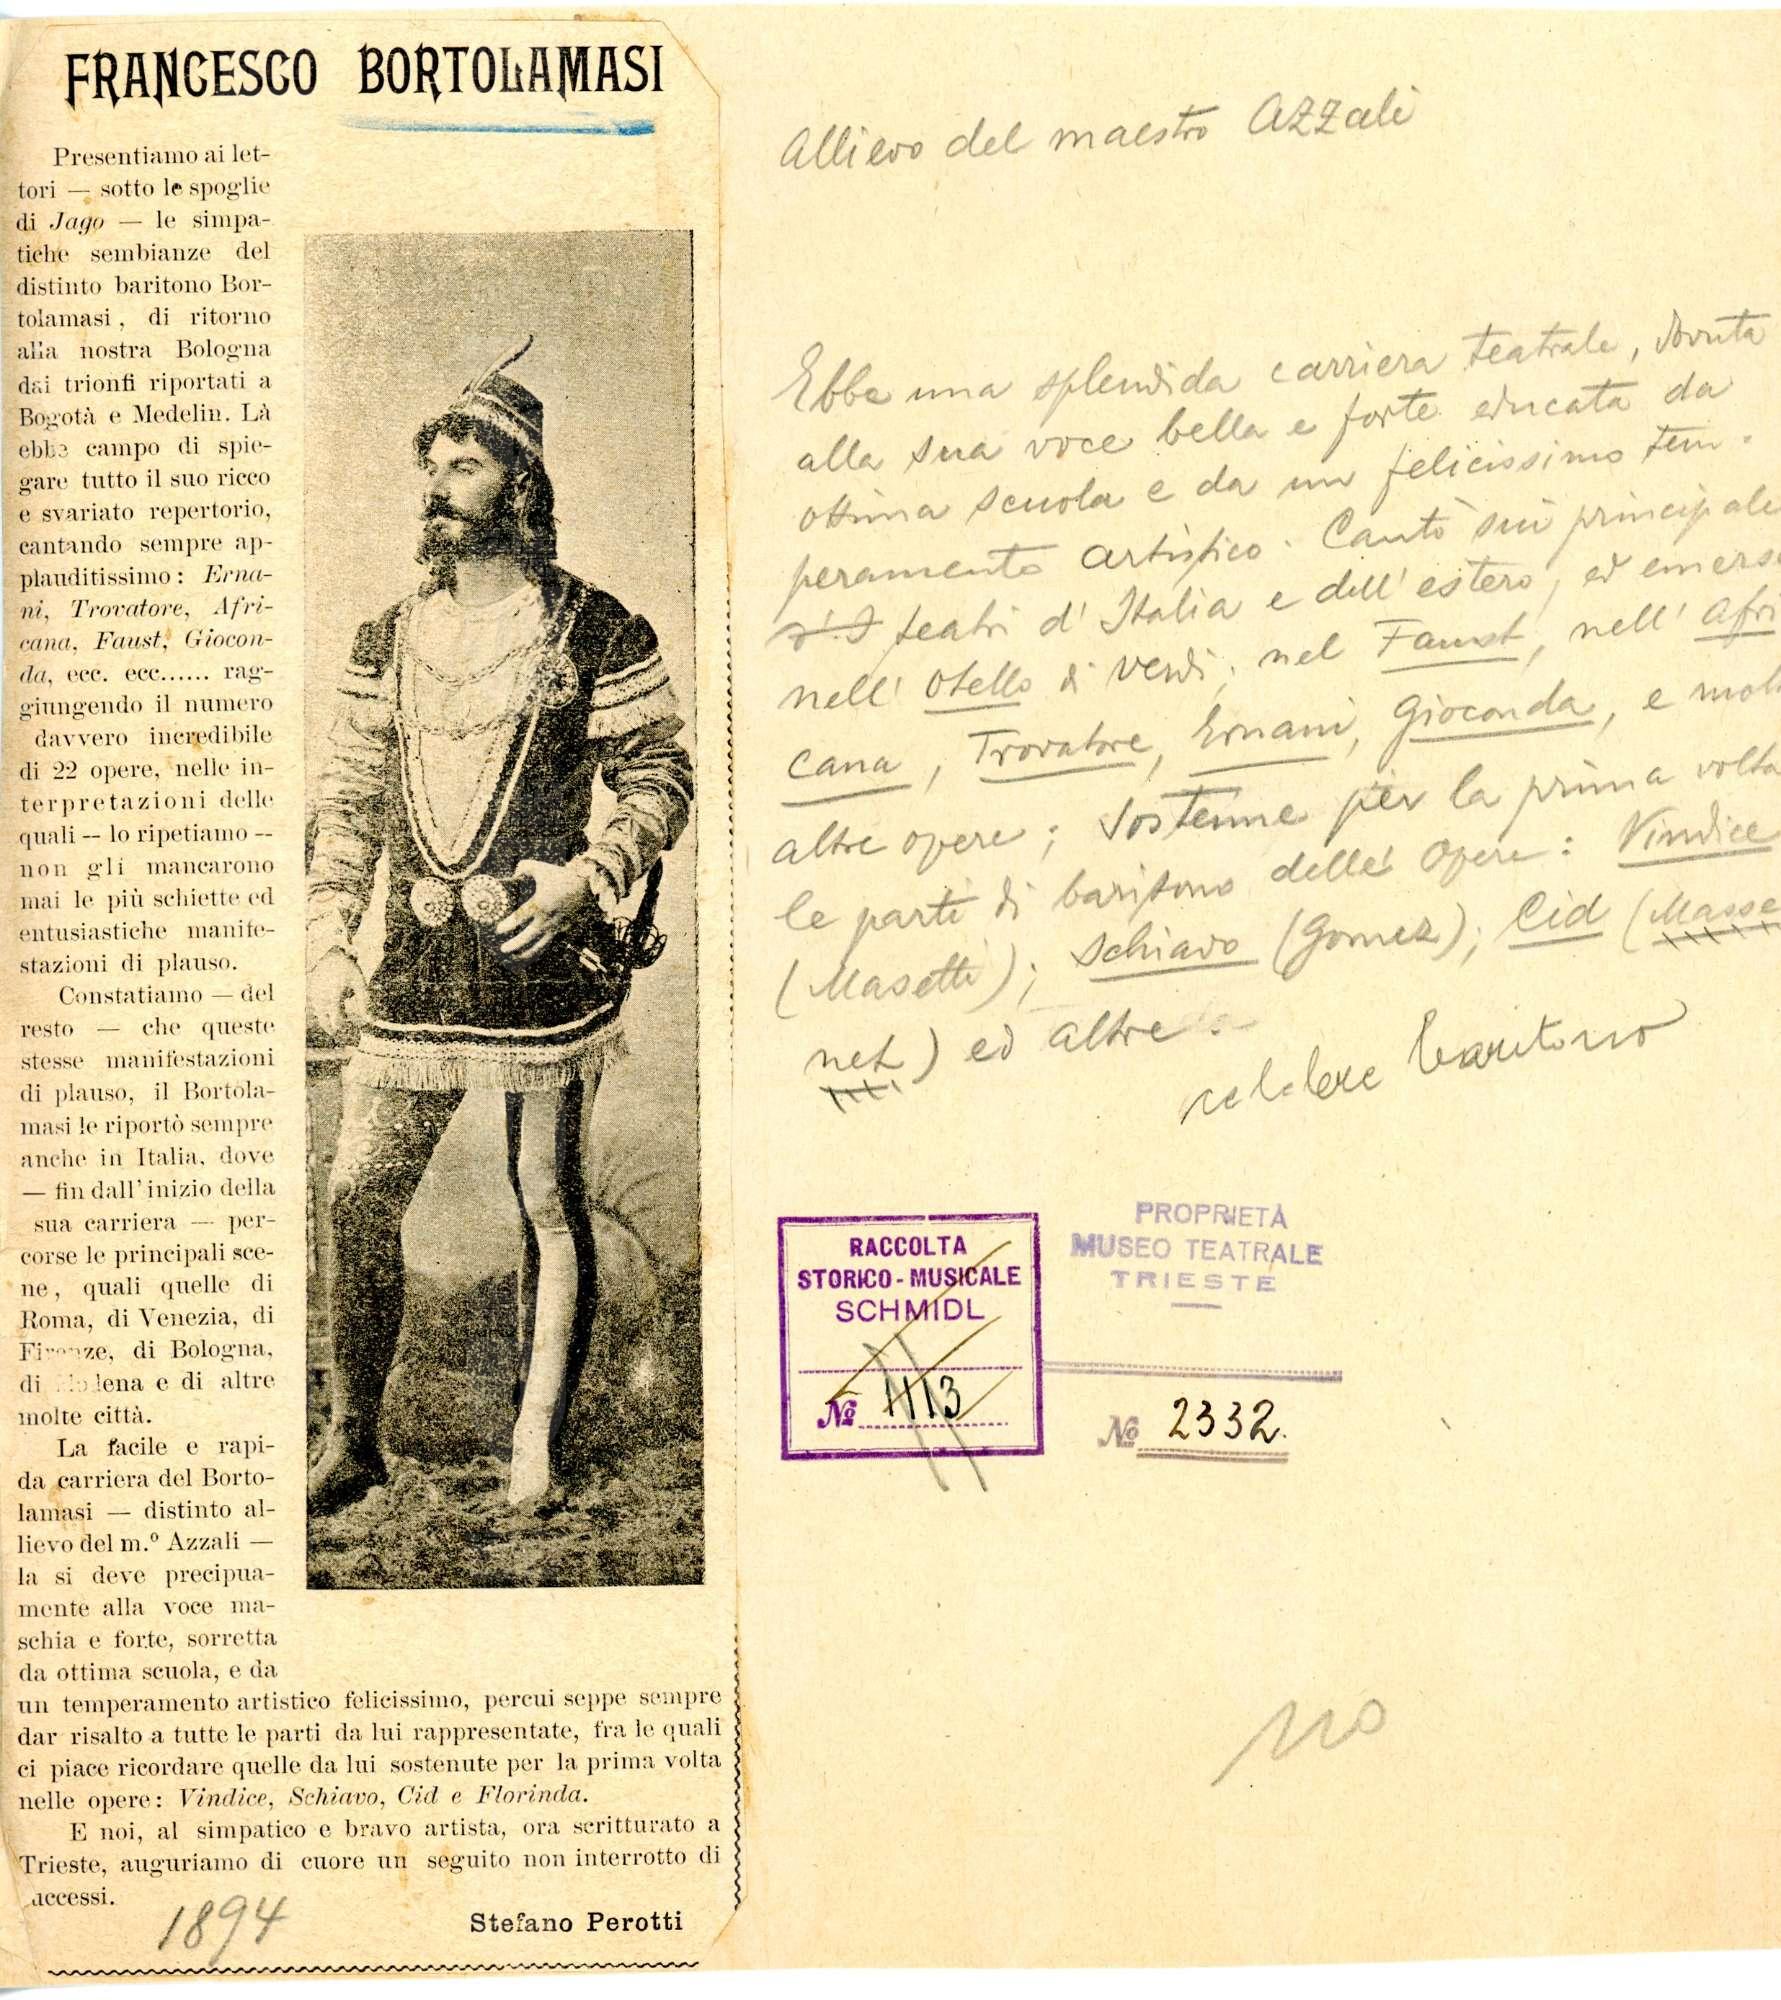 FRANCESCO BORTOLAMASI
Presentiamo ai let-
tori — sotto le spoglie
di Jago — le simpa-
tiche sembianze del
distinto baritono Bor-
tolamasi, di ritorno
alla nostra Bologna
dai trionfi riportati a
Bogotà e Medelin. Là
ebbe campo di spie-
gare tutto il suo ricco
e svariato repertorio,
cantando sempre ap-
plauditissimo: Erna-
ni, Trovatore, Afri-
cana, Faust, Giocon-
da, ecc. ecc...... rag-
giungendo il numero
davvero incredibile
di 22 opere, nelle in-
terpretazioni delle
quali -- lo ripetiamo --
non gli mancarono
mai le più schiette ed
entusiastiche manife-
stazioni di plauso.
Constatiamo — del
resto — che queste
stesse manifestazioni
di plauso, il Bortola-
masi le riportò sempre
anche in Italia, dove
— fin dall'inizio della
sua carriera — per-
corse le principali sce-
ne, quali quelle di
Roma, di Venezia, di
Firenze, di Bologna,
di Modena e di altre
molte città.
La facile e rapi-
da carriera del Borto-
lamasi — distinto al-
lievo del m.º Azzali —
la si deve precipua-
mente alla voce ma-
schia e forte, sorretta
da ottima scuola, e da
un temperamento artistico felicissimo, percui seppe sempre
dar risalto a tutte le parti da lui rappresentate, fra le quali
ci piace ricordare quelle da lui sostenute per la prima volta
nelle opere: Vindice, Schiavo, Cid e Florinda.
E noi, al simpatico e bravo artista, ora scritturato a
Trieste, auguriamo di cuore un seguito non interrotto di
accessi.
1894
Stefano Perotti
Allievo del maestro Azzali
Ebbe una splendida carriera teatrale, dovuta
alla sua voce bella e forte educata da
ottima scuola e da un felicissimo tem-
peramento artistico. Cantò sui principali
teatri d'Italia e dell'estero, ed emerse
nell' Otello di Verdi, nel Faust, nell' Afri
cana, Trovatore, Ernani, Gioconda, e molte
altre opere; sostenne per la prima volta
le parti di baritono delle opere: Vindice
(Masetti); Schiavo (Gomez); Cid (Masse
net) ed altre.
celebre baritono
RACCOLTA
STORICO-MUSICALE
SCHMIDL
No 1113
PROPRIETÀ
MUSEO TEATRALE
TRIESTE
No 2332.
no